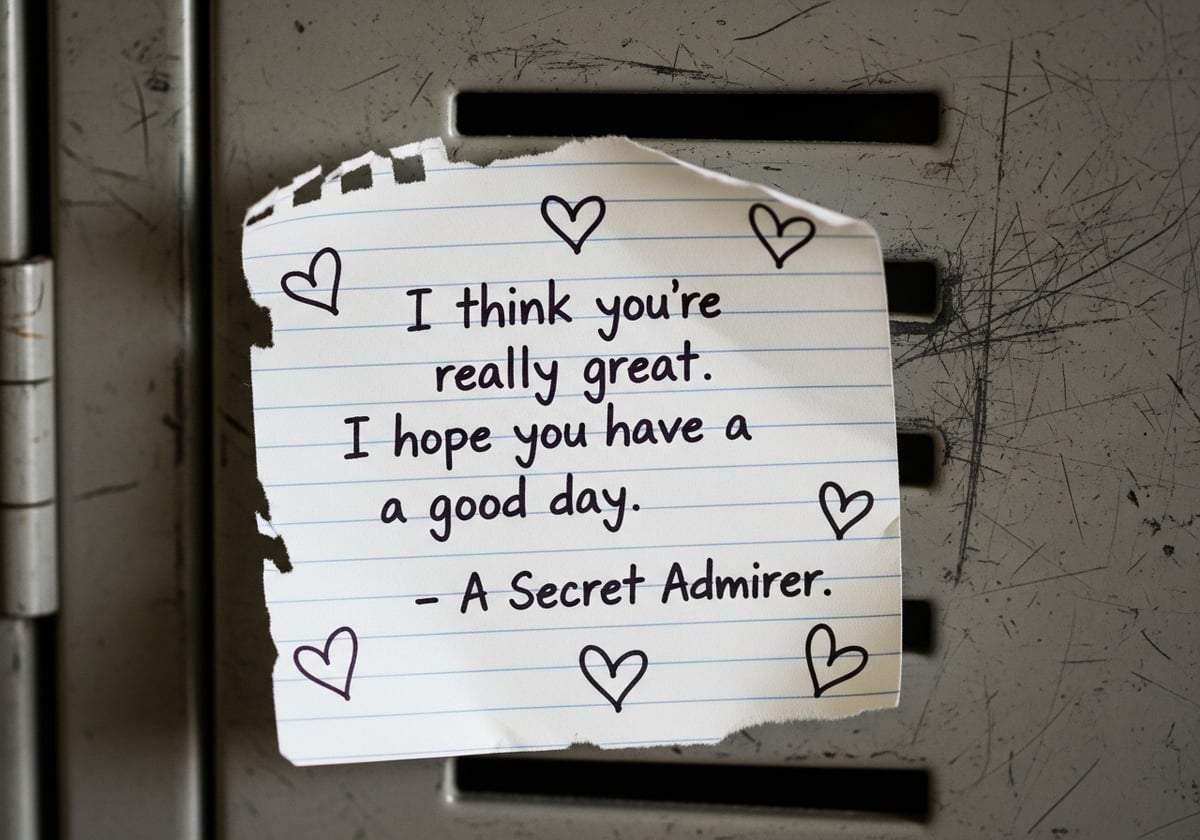 I think you're
really great.
I hope you have a
a good day.
- A Secret Admirer.